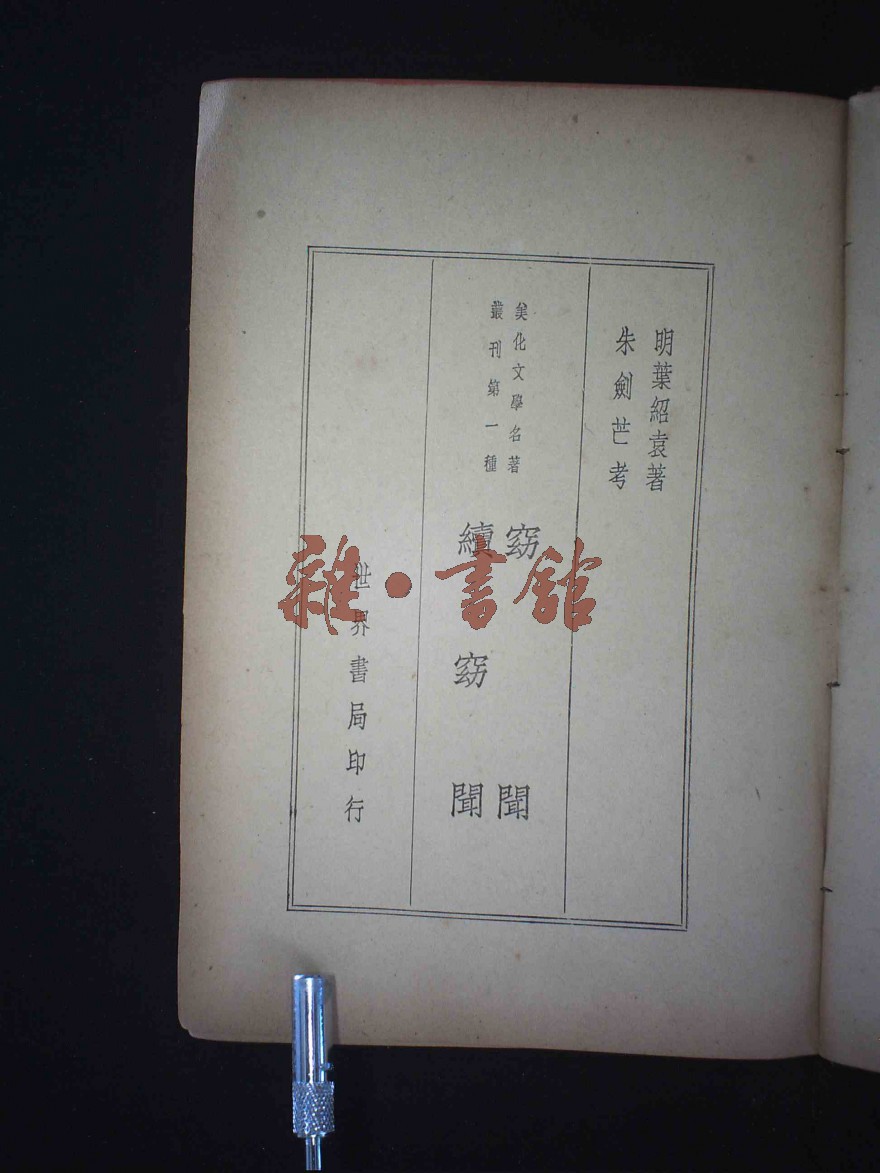 明葉紹袁著
朱劍芒考
美化文學名著
叢刊第一種
窈聞
續窈聞
世界書局印行
雜·書館